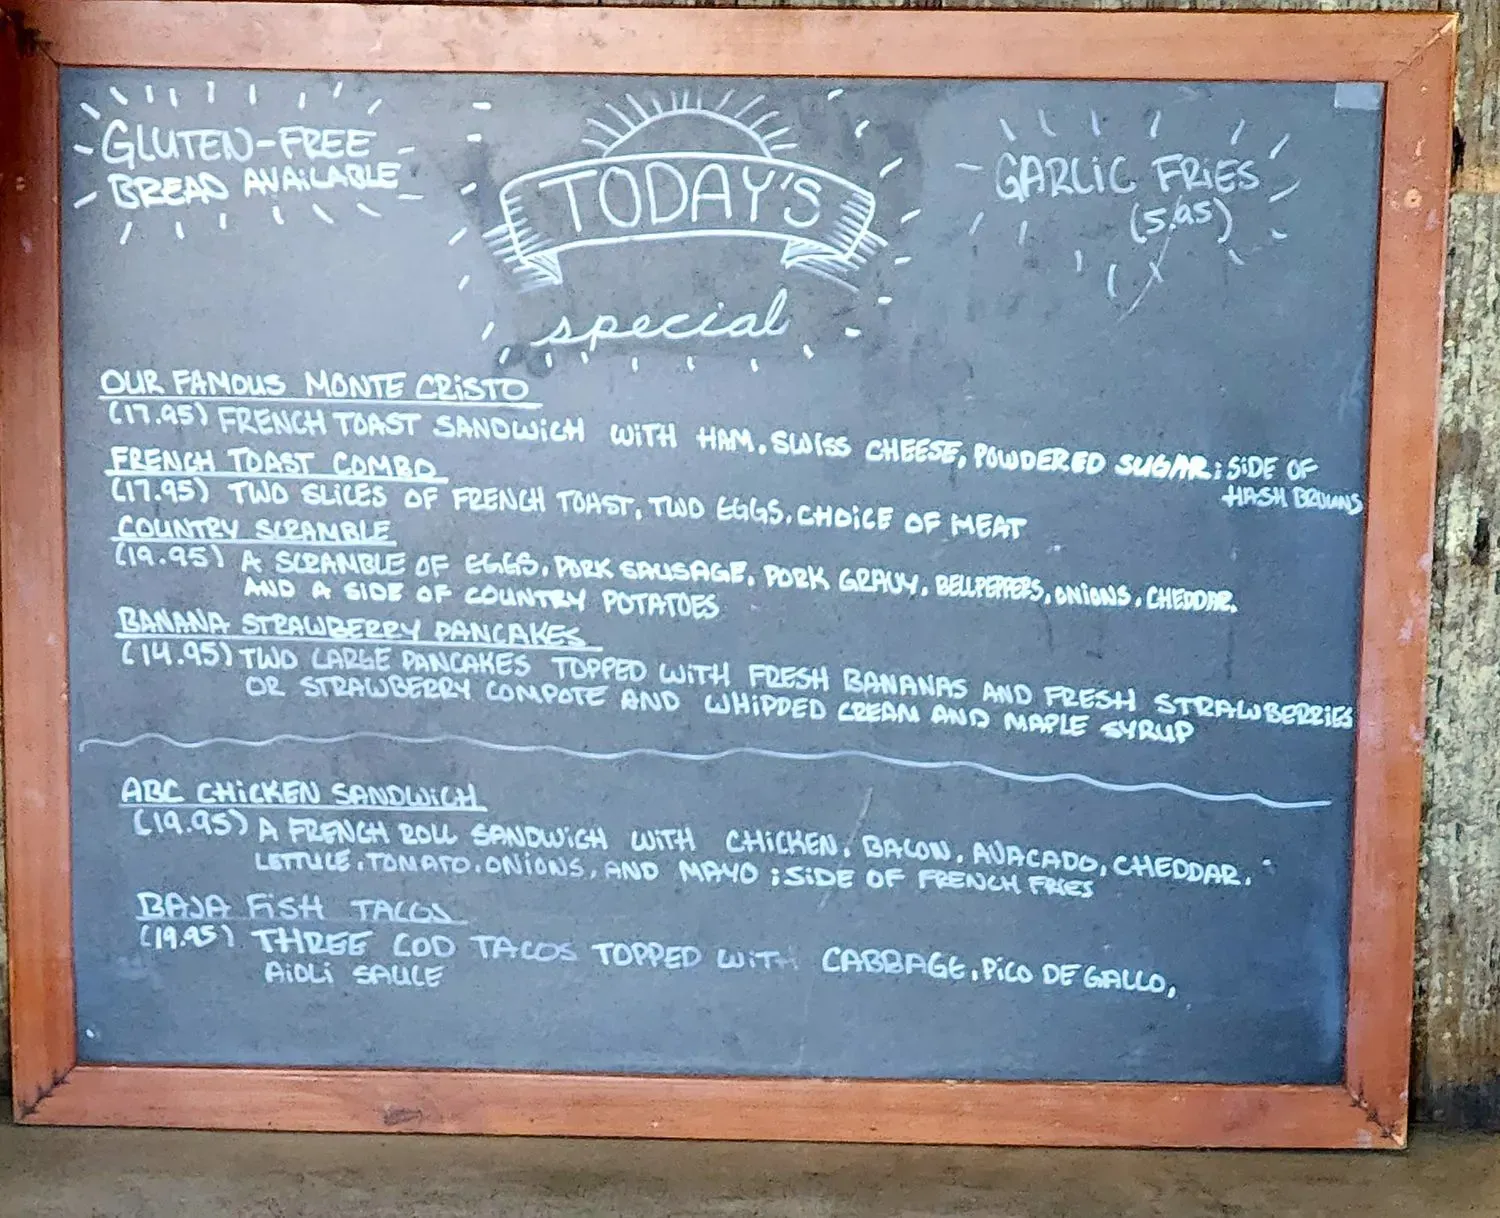 GLUTEN-FREE
BREAD AVAILABLE
TODAY'S
special
GARLIC FRIES
(5.95)
OUR FAMOUS MONTE CRISTO
(17.95) FRENCH TOAST SANDWICH WITH HAM, SWISS CHEESE, POWDERED SUGAR; SIDE OF
HASH BROWNS
FRENCH TOAST COMBO
(17.95) TWO SLICES OF FRENCH TOAST, TWO EGGS, CHOICE OF MEAT
COUNTRY SCRAMBLE
(19.95) A SCRAMBLE OF EGGS, PORK SAUSAGE, PORK GRAVY, BELLPEPPERS, ONIONS, CHEDDAR,
AND A SIDE OF COUNTRY POTATOES
BANANA STRAWBERRY PANCAKES
(14.95) TWO LARGE PANCAKES TOPPED WITH FRESH BANANAS AND FRESH STRAWBERRIES
OR STRAWBERRY COMPOTE AND WHIPPED CREAM AND MAPLE SYRUP
ABC CHICKEN SANDWICH
(19.95) A FRENCH ROLL SANDWICH WITH CHICKEN, BACON, AVACADO, CHEDDAR,
LETTUCE, TOMATO, ONIONS, AND MAYO; SIDE OF FRENCH FRIES
BAJA FISH TACOS
(19.95) THREE COD TACOS TOPPED WITH CABBAGE, PICO DE GALLO,
AIOLI SAUCE